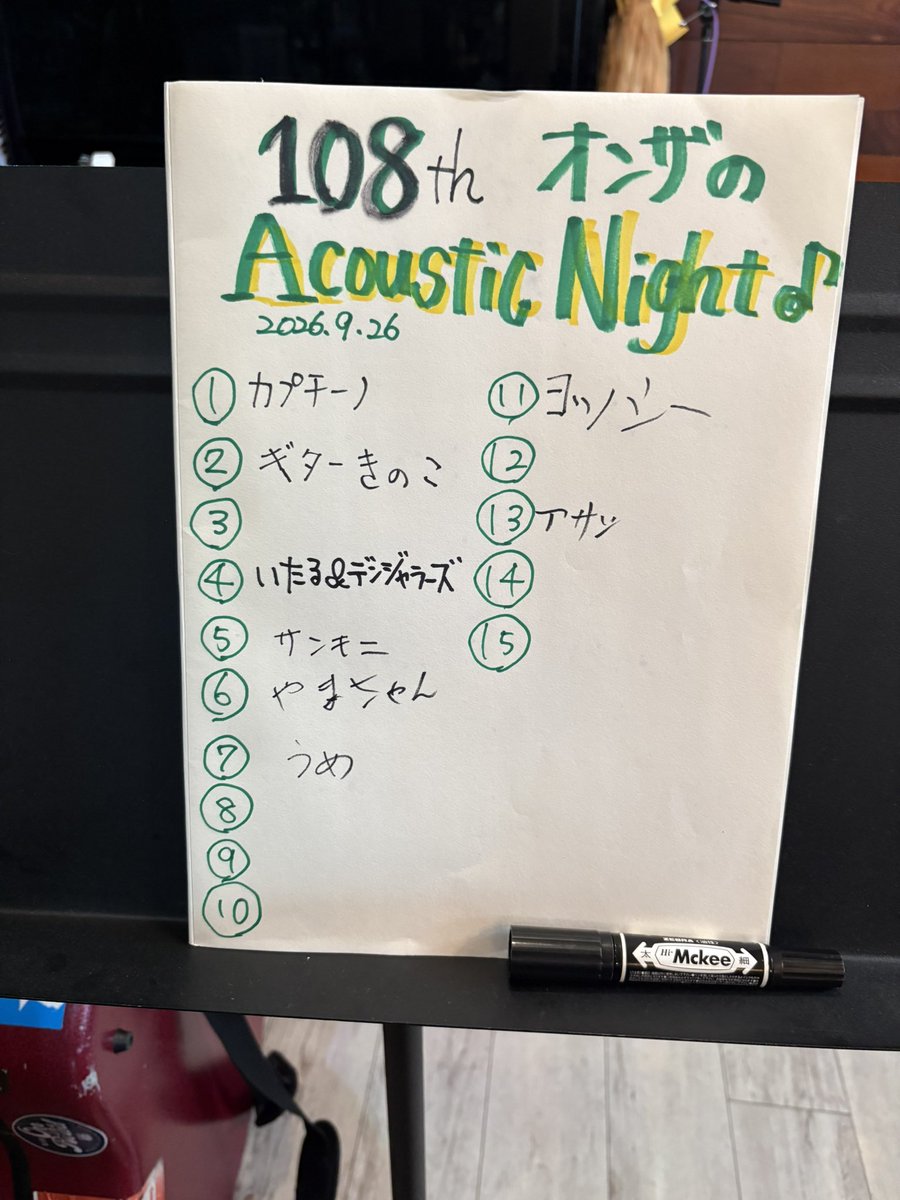 108th オンザの
Acoustic Night♪
2026.9.26
① カプチーノ
② ギターきのこ
③
④ いたる&デンジャラーズ
⑤ サンモニ
⑥ やまちゃん
⑦ うめ
⑧
⑨
⑩
⑪ ヨッシー
⑫
⑬ アサツ
⑭
⑮
ZEBRA
太 Hi-Mckee 細